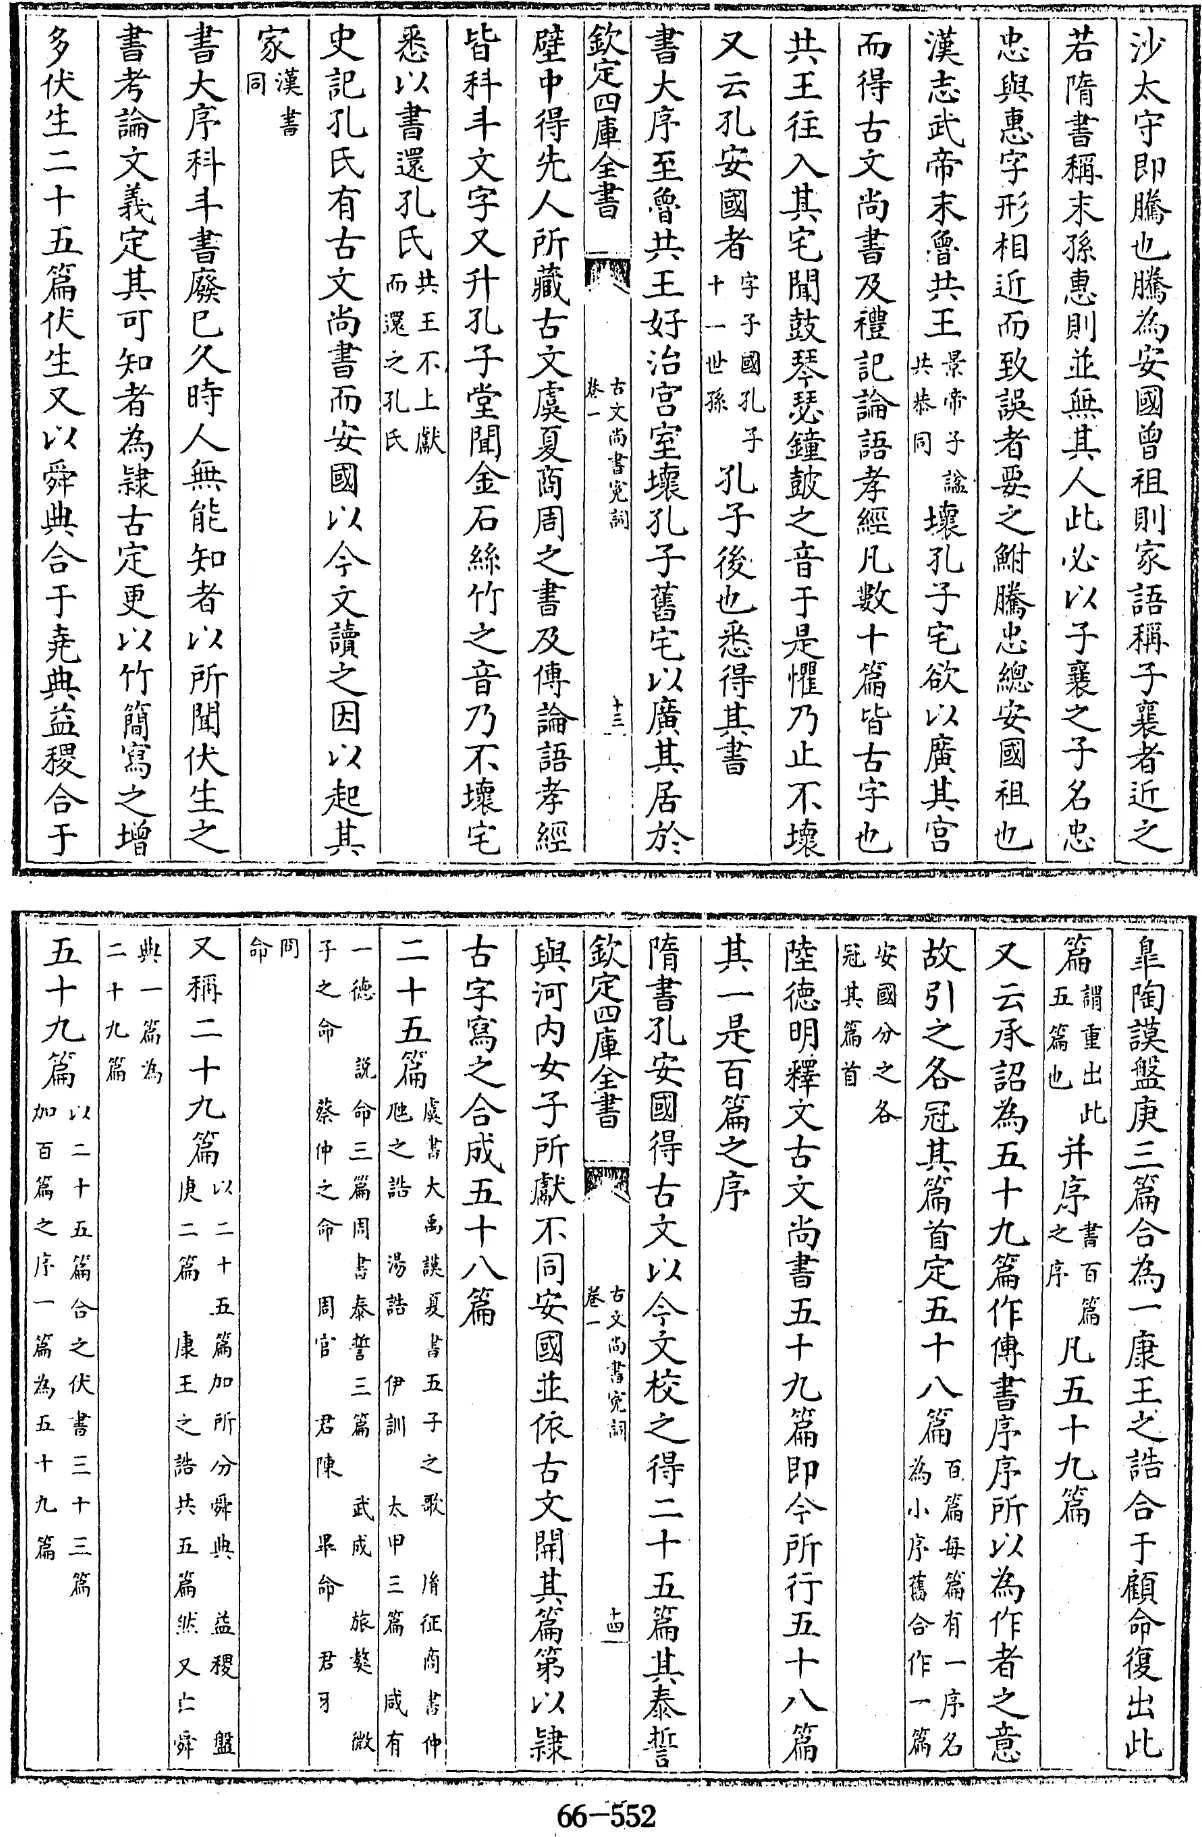 沙太守即騰也騰為安國曾祖則家語稱子襄者近之
若隋書稱末孫惠則並無其人此必以子襄之子名忠
忠與惠字形相近而致誤者要之鮒騰忠總安國祖也
漢志武帝末魯共王景帝子諡共恭同壞孔子宅欲以廣其宮
而得古文尚書及禮記論語孝經凡數十篇皆古字也
共王往入其宅聞鼓琴瑟鐘鼓之音于是懼乃止不壞
又云孔安國者字子國孔子十一世孫孔子後也悉得其書
書大序至魯共王好治宮室壞孔子舊宅以廣其居於
欽定四庫全書 古文尚書寃詞卷一 十三
壁中得先人所藏古文虞夏商周之書及傳論語孝經
皆科斗文字又升孔子堂聞金石絲竹之音乃不壞宅
悉以書還孔氏共王不上獻而還之孔氏
史記孔氏有古文尚書而安國以今文讀之因以起其
家漢書同
書大序科斗書廢已久時人無能知者以所聞伏生之
書考論文義定其可知者為隸古定更以竹簡寫之增
多伏生二十五篇伏生又以舜典合于堯典益稷合于
皐陶謨盤庚三篇合為一康王之誥合于顧命復出此
篇謂重出此五篇也并序書百篇之序凡五十九篇
又云承詔為五十九篇作傳書序序所以為作者之意
故引之各冠其篇首定五十八篇百篇每篇有一序名為小序舊合作一篇
安國分之各冠其篇首
陸德明釋文古文尚書五十九篇即今所行五十八篇
其一是百篇之序
隋書孔安國得古文以今文校之得二十五篇其泰誓
欽定四庫全書 古文尚書寃詞卷一 十四
與河内女子所獻不同安國並依古文開其篇第以隸
古字寫之合成五十八篇
二十五篇虞書大禹謨夏書五子之歌 胤征商書仲虺之誥 湯誥 伊訓 太甲三篇 咸有
一德 說命三篇周書泰誓三篇 武成 旅獒 微子之命 蔡仲之命 周官 君陳 畢命 君牙
冏命
又稱二十九篇以二十五篇加所分舜典 益稷 盤庚二篇 康王之誥共五篇然又亡舜
典一篇為二十九篇
五十九篇以二十五篇合之伏書三十三篇加百篇之序一篇為五十九篇
66-552